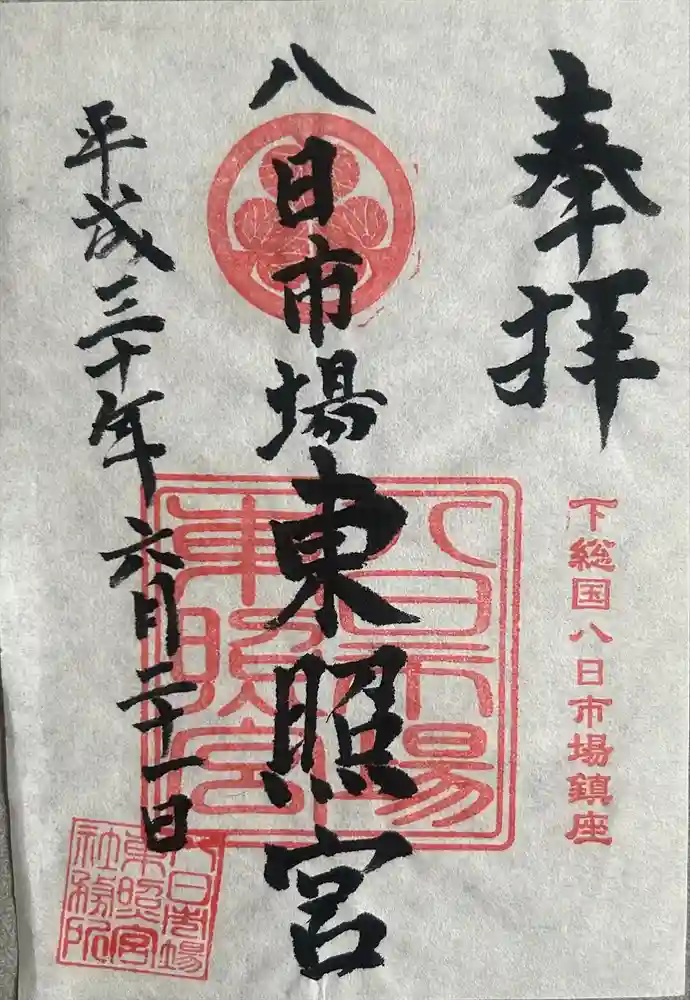 奉拝
下総国八日市場鎮座
八日市場東照宮
八日市場
東照宮
平成三十年六月二十一日
八日市場
東照宮
社務所